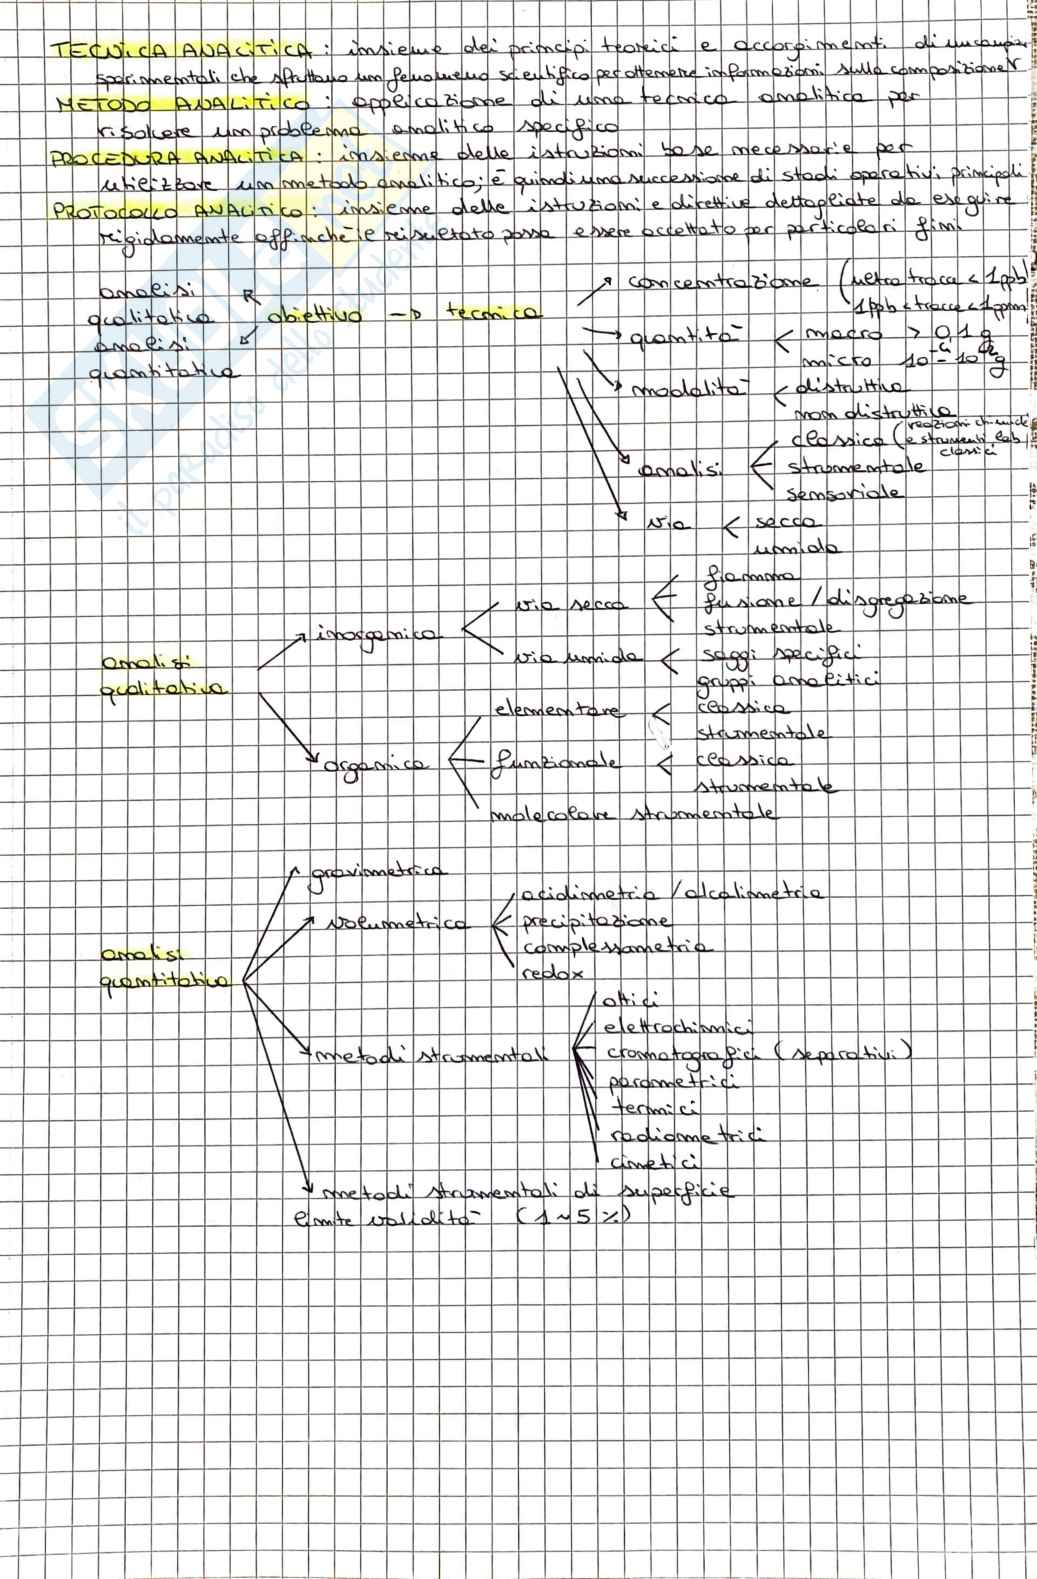 TECNICA ANALITICA : insieme dei principi teorici e accorgimenti di un campione
sperimentali che sfruttano un fenomeno scientifico per ottenere informazioni sulla composizione
METODO ANALITICO : applicazione di una tecnica analitica per
risolvere un problema analitico specifico
PROCEDURA ANALITICA : insieme delle istruzioni base necessarie per
utilizzare un metodo analitico; è quindi una successione di stadi operativi principali
PROTOCOLLO ANALITICO : insieme delle istruzioni e direttive dettagliate da eseguire
rigidamente affinché il risultato possa essere accettato per particolari fini
analisi
qualitativa
analisi
quantitativa
obiettivo → tecnica
concentrazione (ultra tracce < 1ppb
1ppb < tracce < 1ppm)
quantità < macro > 0,1 g
micro 10⁻⁴ - 10⁻² g
modalità < distruttiva
non distruttiva
analisi < classica (reazioni chimiche
e strumenti lab.
classici
strumentale
sensoriale
via < secca
umida
analisi
qualitativa
inorganica
via secca < fiamma
fusione / disgregazione
strumentale
via umida < saggi specifici
gruppi analitici
organica
elementare < classica
strumentale
funzionale < classica
strumentale
molecolare strumentale
analisi
quantitativa
gravimetrica
volumetrica
acidimetria / alcalimetria
precipitazione
complessometria
redox
metodi strumentali
ottici
elettrochimici
cromatografici (separativi)
parametrici
termici
radiometrici
cinetici
metodi strumentali di superficie
limite validità (1 ~ 5 %)
il paradiso dello studente